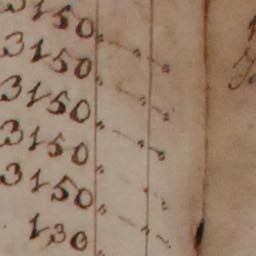 3150 " — " — "
3150 " — " — "
3150 " — " — "
3150 " — " — "
3150 " — " — "
130 " — " — "